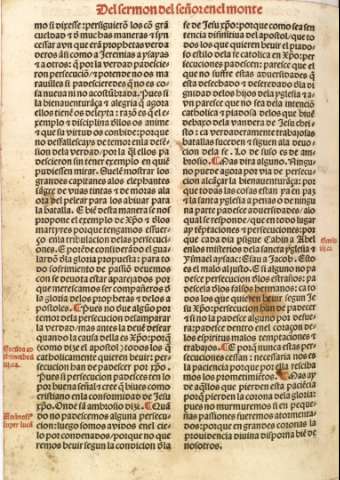 Del sermon del señor en el monte
mo si dixesse: persiguierõ los cõ grã
crueldad ⁊ õ muchas maneras ⁊ syn
cessar avn que erã prophetas verda
deros ãsi como a Jeremias a ysayas
⁊ a otros: q̃ por la verdad padescie-
ron persecuciõ: ⁊ porende no os ma
rauilles si padescierdes q̃ no es co-
sa nueua ni no acostũbrada. Pues si
la bienauenturãça ⁊ alegria q̃ agora
ellos tienē os deleyta: razõ es q̃ el ex-
emplo ⁊ disciplina dellos os anime
⁊ que su virtud os conbide: porque
no desfallescays de temor enla defe-
sion dela verdad por la q̃l ellos pa
descieron sin tener exemplo en quiē
pudiessen mirar. Suelē mostrar los
grandes capitanes alos elephantes
sãgre de vuas tintas ⁊ de moras ala
ora del pelear para los abiuar para
la batalla. E bē desta manera se nos
propone el exemplo de Xp̃o ⁊ dlos
martyres porque tengamos esfuer-
ço enla tribulacion delas persecucio-
nes. E porẽde considerãdo el gua-
lardõ dla gloria propuesta: para to
do sofrimiento de passiõ deuemos
con fe deuota estar aparejados por
que merezcamos ser compañeros õ
la gloria delos prophetas ⁊ delos a
postoles. Pues no que algũo por
temor dela persecucion desamparar
la verdad/mas antes la deue dessear
quando es la causa della es Xp̃o: porq̃
(como dize el apostol) todos los q̃
catholicamente quieren beuir: per-
secucion han de padescer por xp̃o.
Pues si persecucion padesces ten lo
por buena señal: ca eres q̃ biues como
cristiano en la conformidad de Jesu
xp̃o. Onde sã ambrosio dize. Quã
do no padescemos alguna persecu-
cion: luego somos avidos en el cie-
lo por condenados/porque no que
remos beuir segun la condicion dla
fe de Jesu xp̃o: porque como sea sen
tencia difinitiua del apostol/que to-
dos los que quieren beuir el piado-
so estilo dela fe catolica en Xp̃o: per-
secuciones padescen: paresce que el
que no suffre estas aduersidades q̃
esta desechado ⁊ deseredado dla di
gnidad delos hijos dela yglesia ⁊ a-
vn paresce que no sea dela intenciõ
catholica ⁊ piadosa delos que biuē
debaxo dela vandera de Jesu chri-
sto: ca verdaderamente trabajosas
batallas suceden ⁊ siguen ala deuo-
cion dela fe. Lo de suso es de am-
brosio. Mas dira alguno. Ningu-
no puede agora por via de persecu-
cion alcãçar la bienauenturãça: por
que todas las cosas estan ya en paz
⁊ la santa yglesia a penas o de ningu
na parte paresce aduersidades/ alo
qual se respõde/ que en todo lugar
ay tẽptaciones ⁊ persecuciones: por
que cada dia pligue Cabin a Abel
en los misterios dela sancta yglesia ⁊
Ysmael a ysaac: Esau a Jacob. Esto
es el malo al justo. E si alguno no pa
desce persecution dlos estraños: pa
descela dlos falsos hermanos: ca to
dos los que quieren beuir segun Je
su Xp̃o: persecucion han de padescer
⁊ si no la padesce de fuera/a lo menos
padesce dentro en el coraçon de
los espiritus malos temptaciones ⁊
trabajos. E porq̃ nunca estas per-
secuciones cessan: necessaria nos es
la paciencia porque por ella resciba
mos los prometimietos. Mas ay
de aq̃llos que pierden esta paciēcia
porq̃ pierden la corona dela gloria:
pues no murmuremos si en peque-
ñas passiones fueremos atormenta-
dos: porque en grandes coronas la
prouidencia diuina dispõne bie de
nosotros.